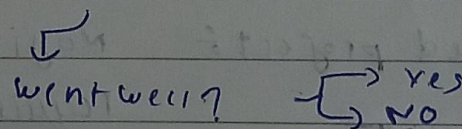 went well? Yes
NO